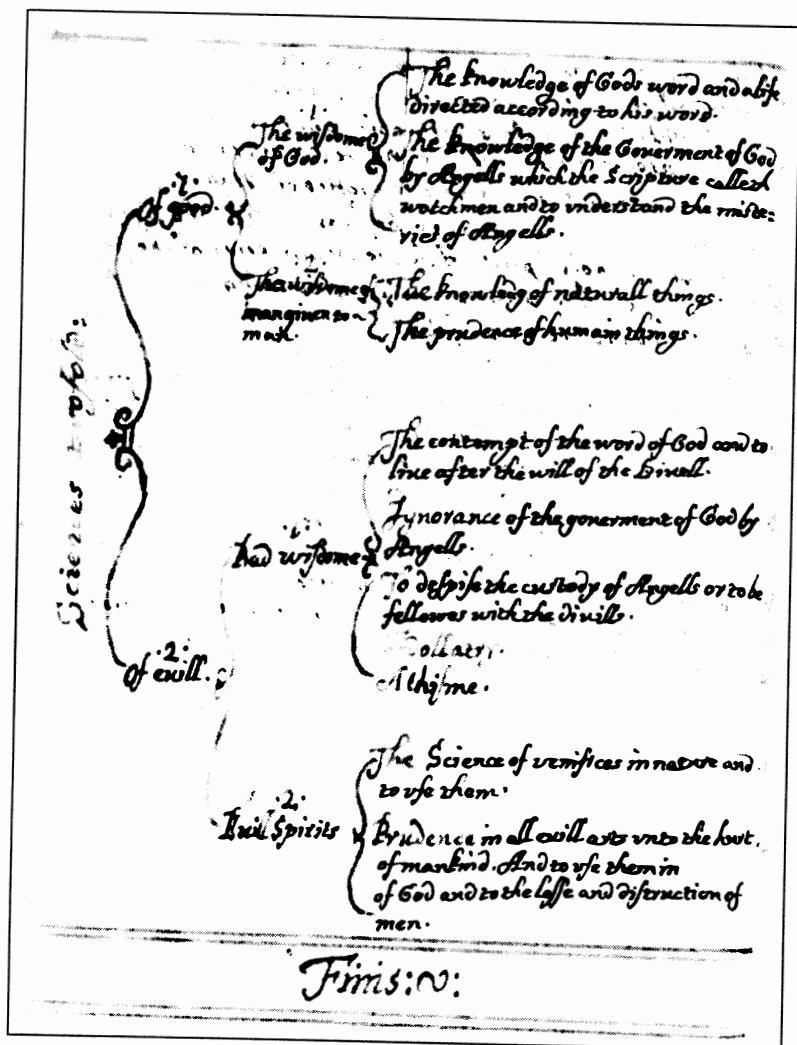 Sciences
.1.
Of good.
The wisdome
of God.
The knowledge of Gods word and a life
directed according to his word.
The knowledge of the Goverment of God
by Angells which the Scripture calleth
watchmen and to vnderstand the miste:
ries of Angells.
.2.
The wisdome of
man given to
man.
The knowledg of naturall things.
The prudence of humain things.
.2.
Of euill.
.1.
Bad wisdome
The contempt of the word of God and to
liue after the will of the Divell.
Ignorance of the gouerment of God by
Angells.
To despise the custody of Angells or to be
fellowes with the divills.
Athisme.
.2.
Euil Spirits
The Science of venifices in nature and
to vse them.
Prudence in all euill arts vnto the hurt
of mankind. And to vse them in
of God and to the losse and distruction of
men.
Finis: